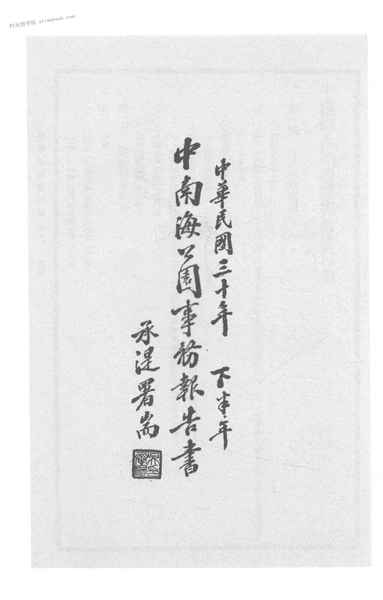 中華民國三十年 下半年
中南海公園事務報告書
承湜署耑